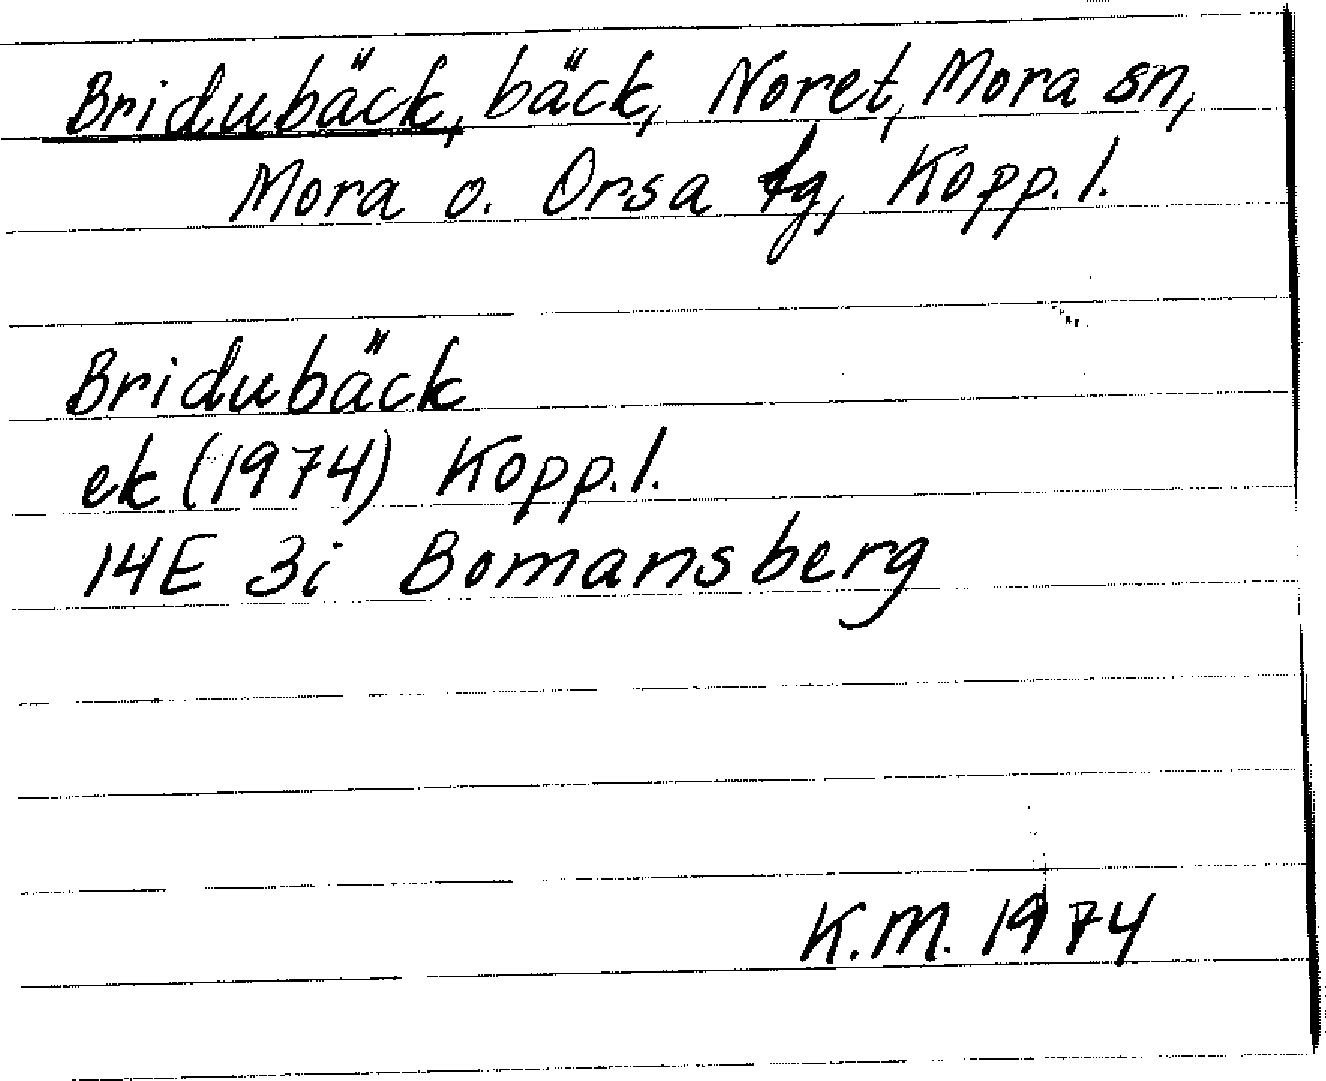 Bridubäck, bäck, Noret, Mora sn,
Mora o. Orsa tg, Kopp. l.
Bridubäck
ek (1974) Kopp. l.
14E 3i Bomansberg
K.M. 1974